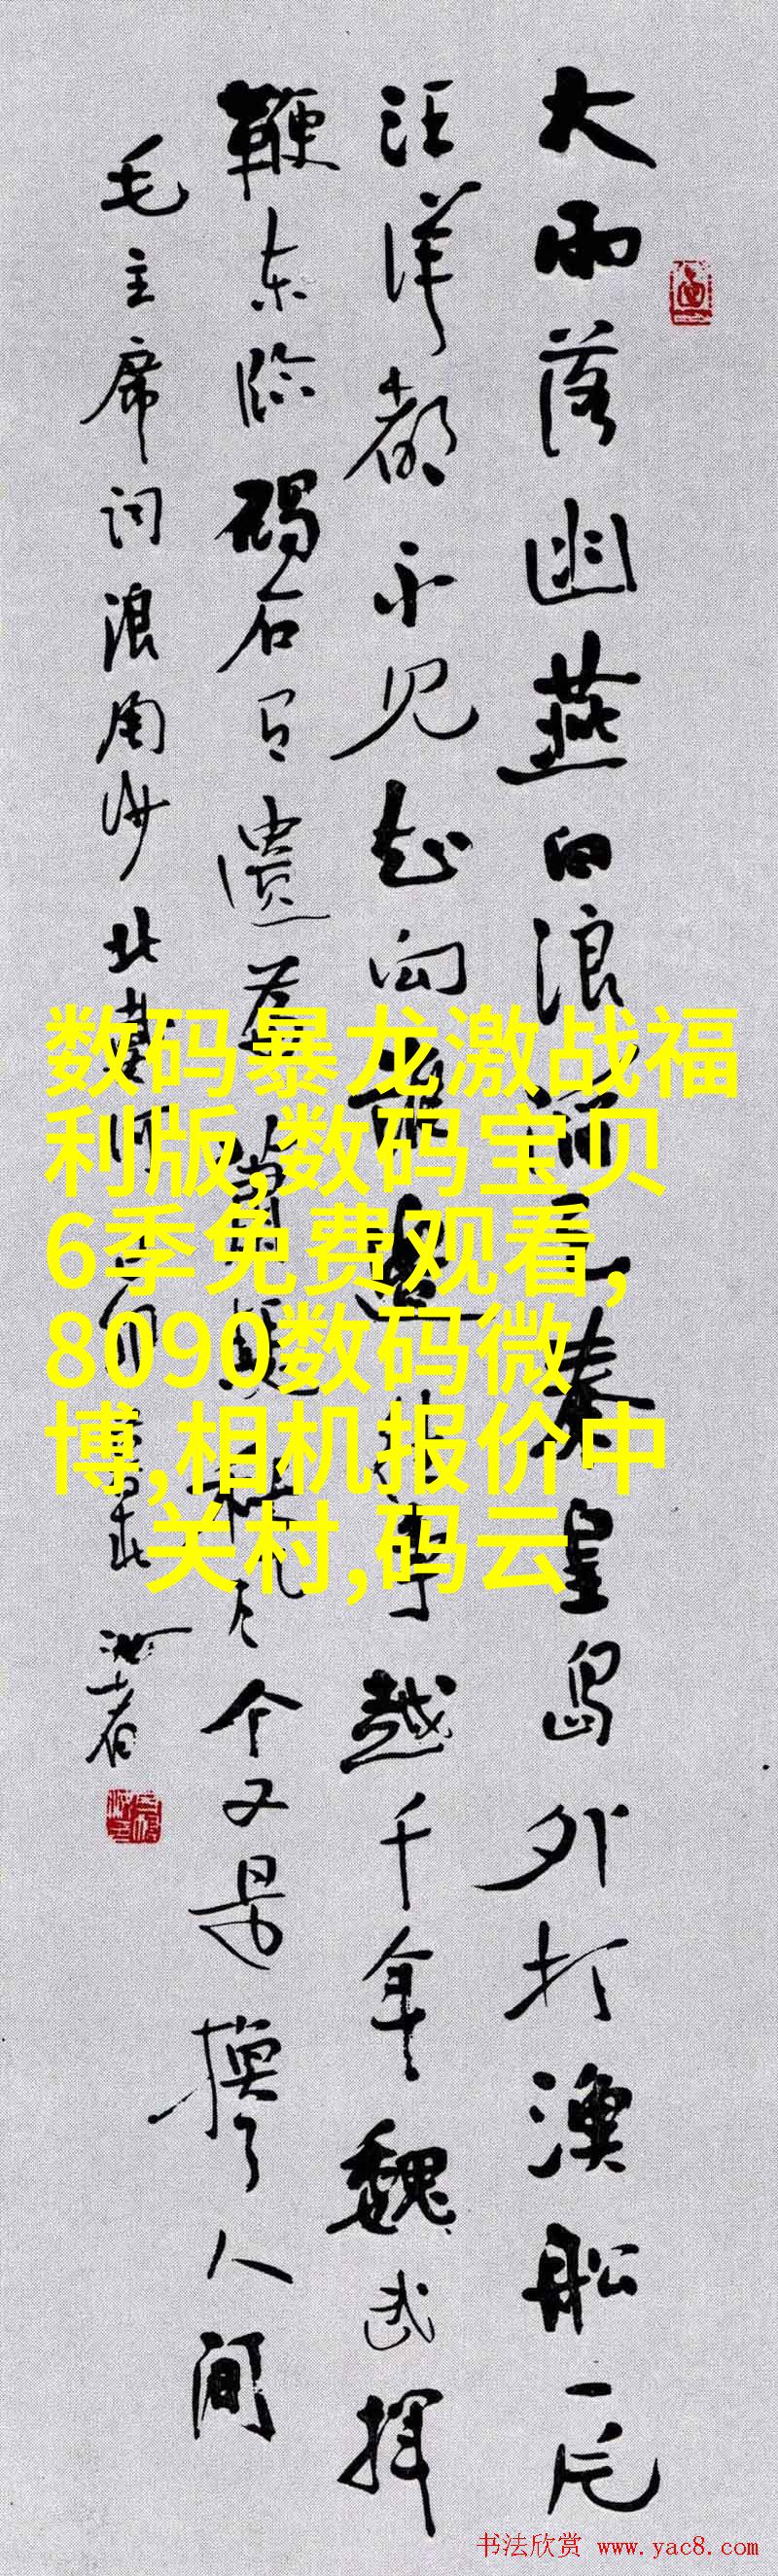 大雨落幽燕白浪滔天秦皇島外打漁船一片
汪洋都不见知向誰邊往事越千年魏武揮
鞭东临碣石有遺篇萧瑟秋风今又是換了人間
毛主席词浪淘沙北戴河
数码暴龙激战福
利版,数码宝贝
6季免费观看,
8090数码微
博,相机报价中
关村,码云
书法欣赏 www.yac8.com